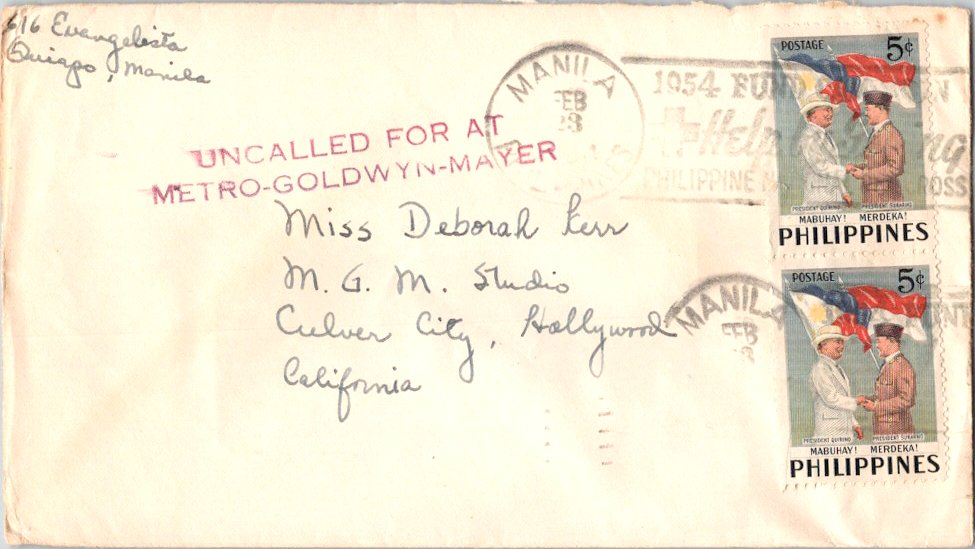 616 Evangelista
Quiapo, Manila
UNCALLED FOR AT
METRO-GOLDWYN-MAYER
Miss Deborah Kerr
M. G. M. Studio
Culver City, Hollywood
California
MANILA
FEB
23
1954 FUND
Help
PHILIPPINE
POSTAGE 5¢
PRESIDENT QUIRINO PRESIDENT SUKARNO
MABUHAY! MERDEKA!
PHILIPPINES
MANILA
FEB
POSTAGE 5¢
PRESIDENT QUIRINO PRESIDENT SUKARNO
MABUHAY! MERDEKA!
PHILIPPINES